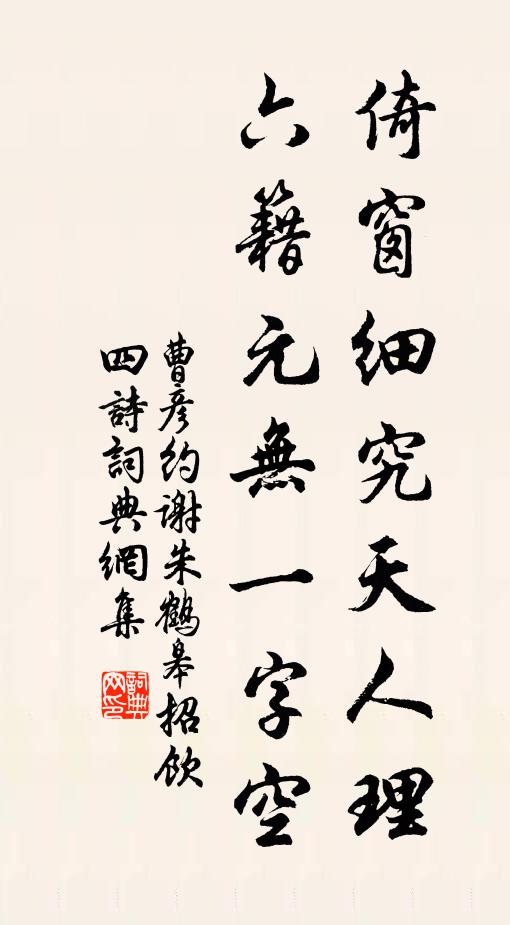 倚窗細究天人理
六籍元無一字空
曹彥约谢朱鶴皋招饮
四詩詞典網集
詞典网印